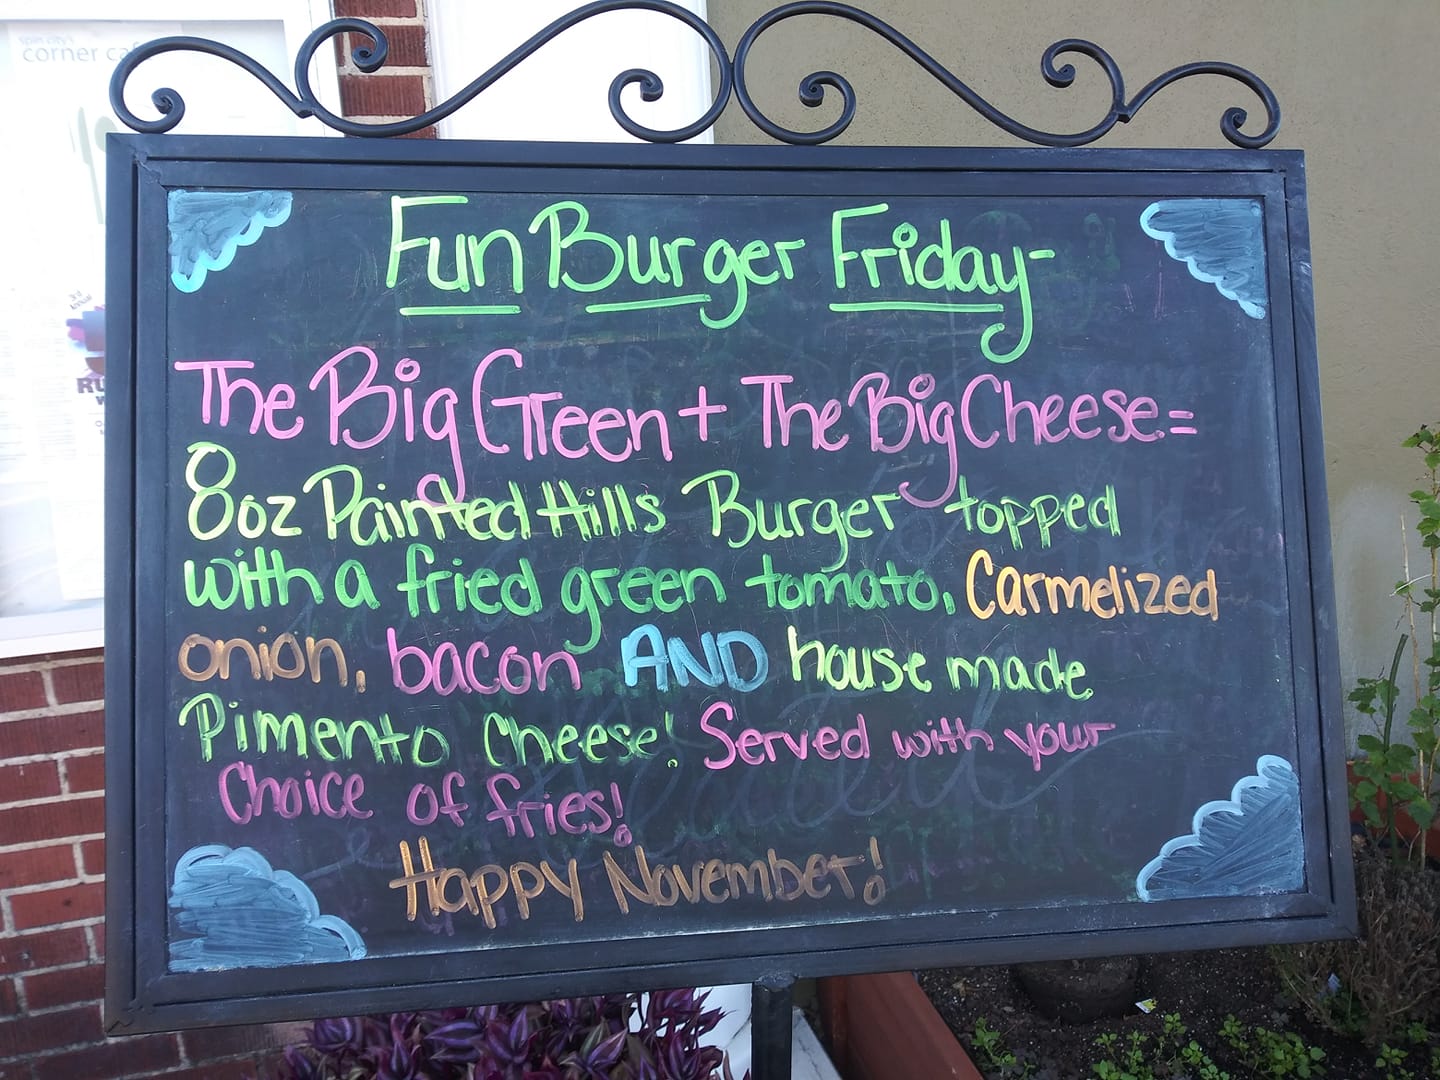 spin city's
corner caf
Fun Burger Friday-
The Big Green + The Big Cheese=
8oz Painted Hills Burger topped
with a fried green tomato, Carmelized
onion, bacon AND house made
Pimento Cheese! Served with your
Choice of fries!
Happy November!